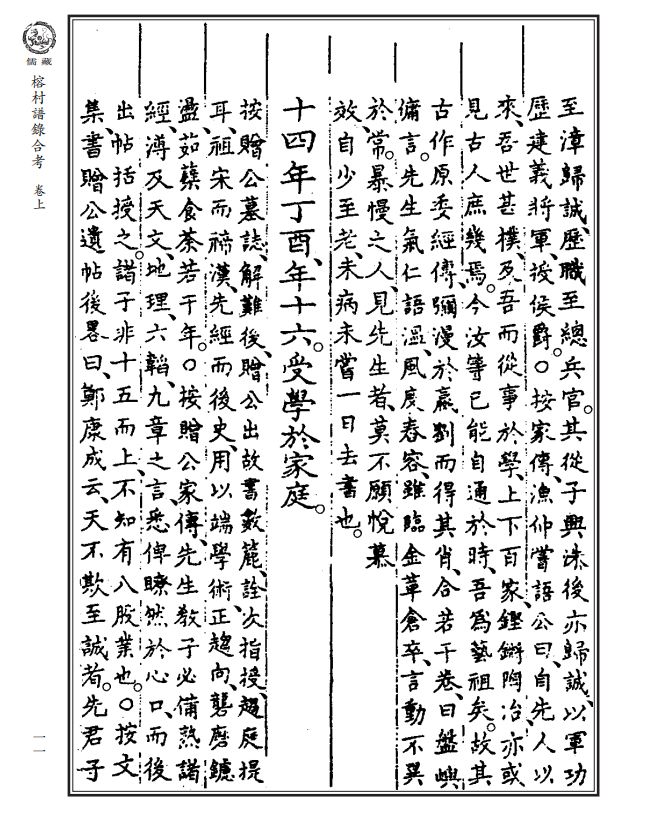 至漳歸誠、歷職至總兵官。其從子興洙後亦歸誠、以軍功
歷建義將軍、授侯爵。○按家傳、漁仲嘗語公曰、自先人以
來、吾世甚樸、及吾而從事於學、上下百家、鏗鏘陶冶、亦或
見古人庶幾焉。今汝等已能自通於時、吾爲藝祖矣。故其
古作原委經傳、彌漫於嬴劉而得其肖、合若干卷、曰盤嶼
傭言。先生氣仁語溫、風度舂容、雖臨金革倉卒、言動不異
於常。暴慢之人、見先生者、莫不願悅慕
效、自少至老、未病未嘗一日去書也。
十四年丁酉、年十六。受學於家庭。
按贈公墓誌、解難後、贈公出故書數簏、詮次指授、趨庭提
耳、祖宋而禘漢、先經而後史、用以端學術、正趨向、礱磨鑢
盪、茹蘗食荼若干年。○按贈公家傳、先生教子必備熟諸
經、溥及天文、地理、六韜、九章之言、悉俾瞭然於心口、而後
出帖括授之。諸子非十五而上、不知有八股業也。○按文
集書贈公遺帖後畧曰、鄭康成云、天不欺至誠者。先君子
儒藏
榕村譜錄合考 卷上
一一